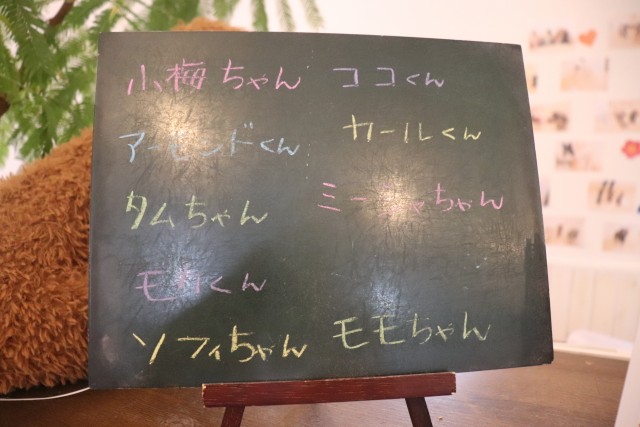 小梅ちゃん
アーモンドくん
タムちゃん
モカくん
ソフィちゃん
ココくん
カールくん
ミーシャちゃん
モモちゃん